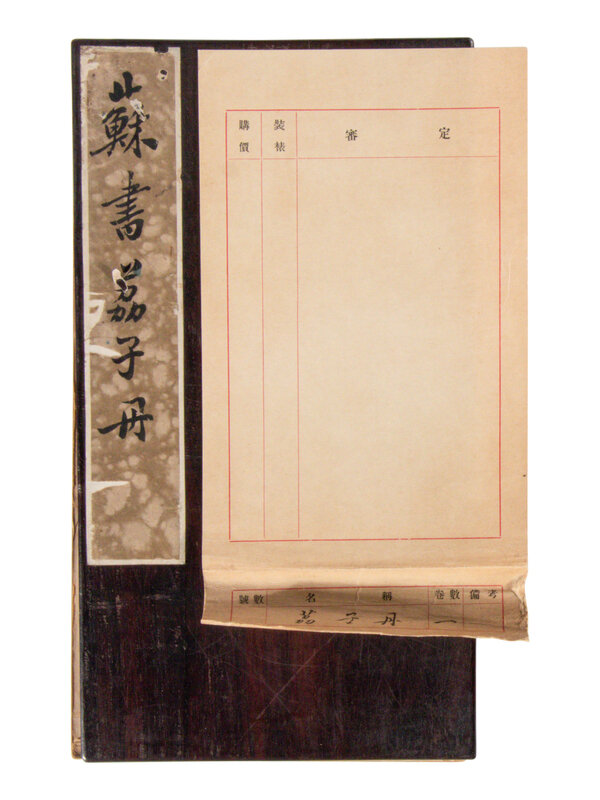 蘇書荔子丹
購價
裝裱
審定
號數 名稱 卷數 備考
荔子丹 一